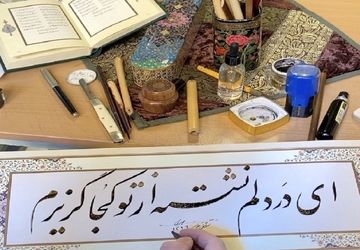 ای در دلم نشسته از تو کجا گریزم